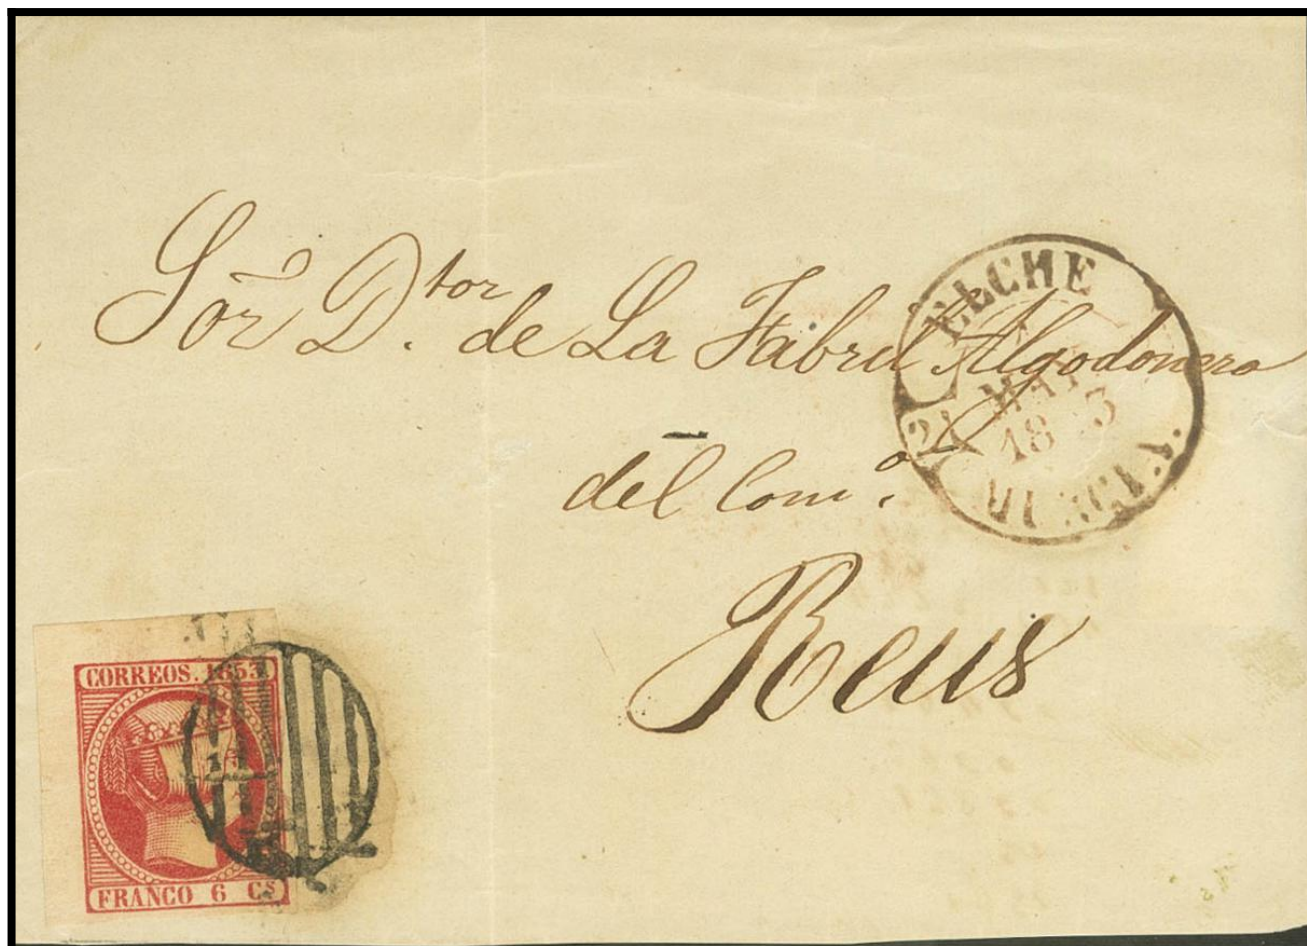 Sor. D.tor de La Fabril Algodonera
del Com.o
Reus
ELCHE
MAY
18 3
MURCIA.
CORREOS. 1853
FRANCO 6 Cs